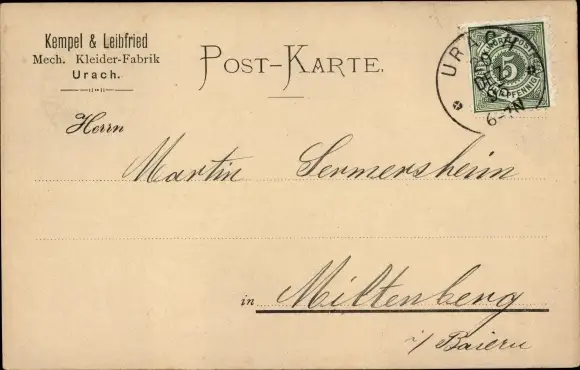 Kempel & Leibfried
Mech. Kleider-Fabrik
Urach.
POST-KARTE.
URACH
5
PFENNIG
6-7N
Herrn
Martin Sermersheim
in Miltenberg
i/ Baiern